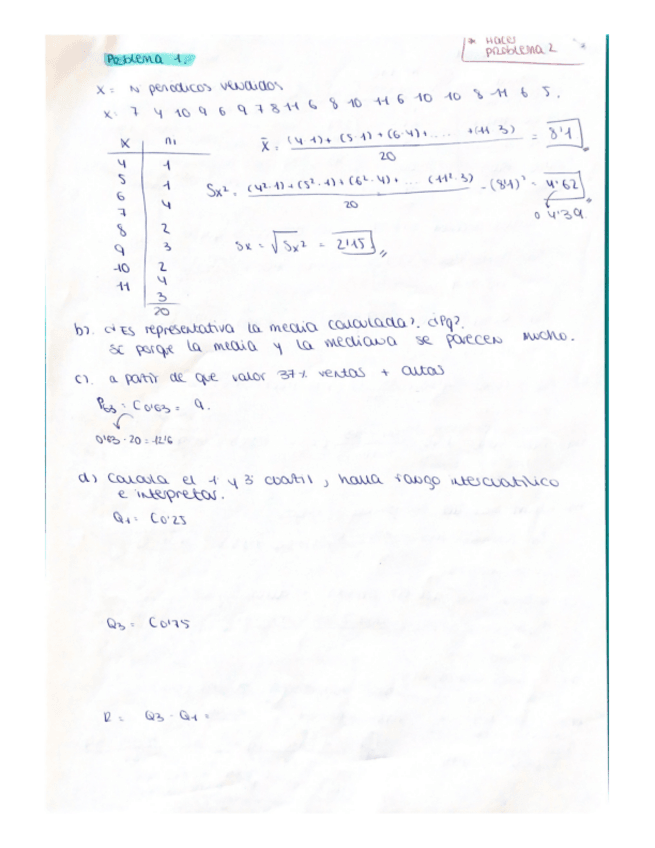 * Hacer
problema 2
Problema 1.
X = N periodicos vendidos
X: 7 4 10 9 6 9 7 8 11 6 8 10 11 6 10 10 8 11 6 5.
X ni
4 1
5 1
6 4
7 2
8 3
9 2
10 4
11 3
20
x̄ = (4·1)+(5·1)+(6·4)+.... +(11·3) / 20 = 8'1
Sx² = (4²·1)+(5²·1)+(6²·4)+... (11²·3) / 20 - (8'1)² = 4'62
o 4'39.
Sx = √Sx² = 2'15
b). ¿Es representativa la media calculada?. ¿Pq?.
Sí porque la media y la mediana se parecen mucho.
c). a partir de que valor 37% ventas + altas
P63 = C0'63 = 9.
0'63·20 = 12'6
d) Calcula el 1 y 3 cuartil, halla rango intercuartilico
e interpretar.
Q1 = C0'25
Q3 = C0'75
R = Q3 - Q1 =